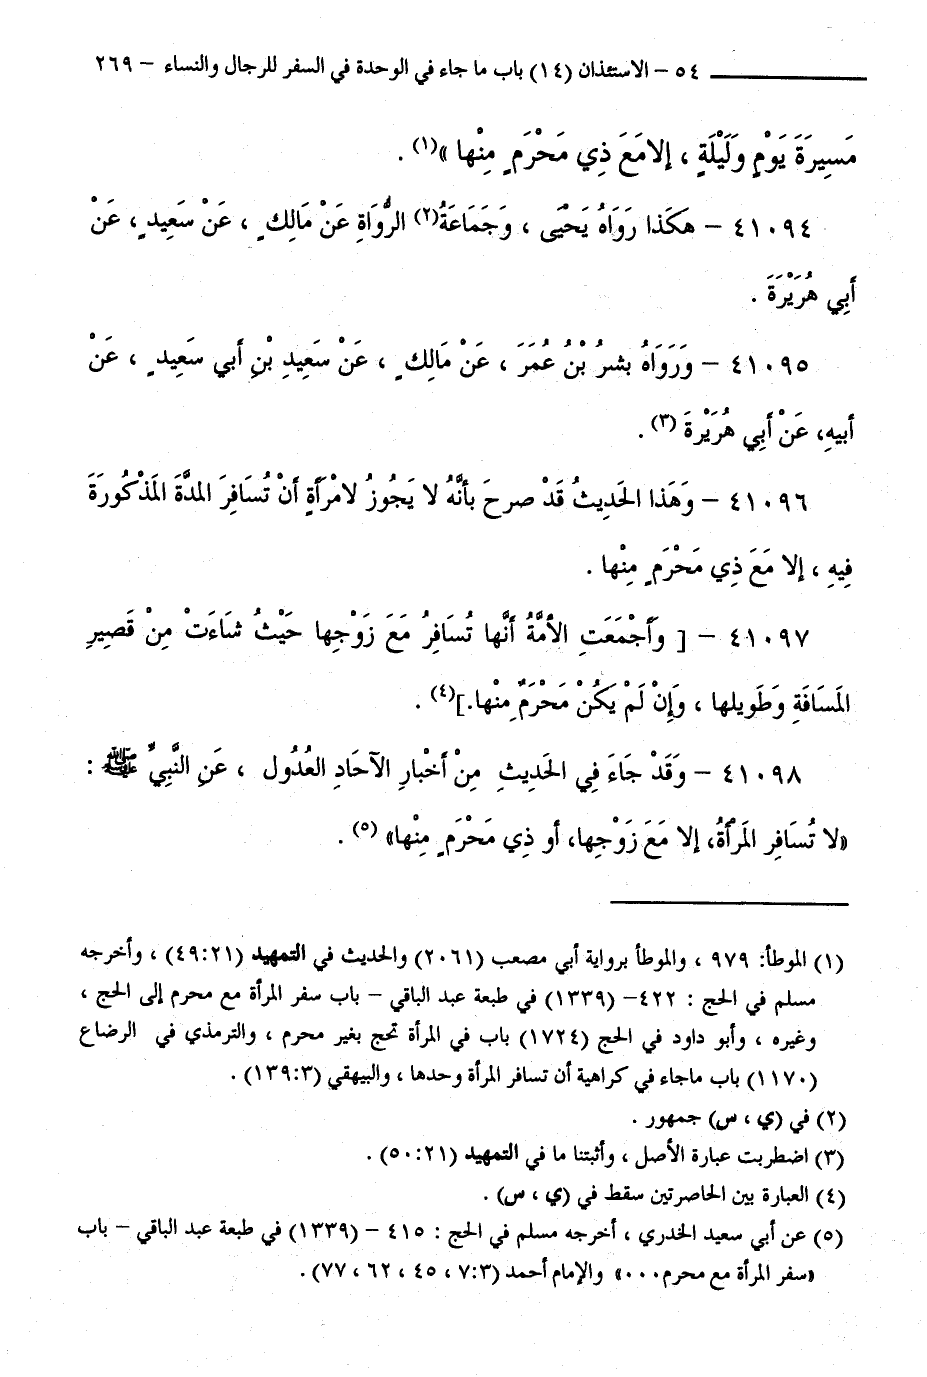 ٥٤ - الاستئذان (١٤) باب ما جاء في الوحدة في السفر للرجال والنساء - ٢٦٩
مَسِيرَةَ يَوْمٍ وَلَيْلَةٍ ، إلا مَعَ ذِي مَحْرَمٍ مِنْها »(١) .
٤١٠٩٤ - هَكَذا رَوَاهُ يَحْيَى ، وَجَمَاعَةُ(٢) الرُّوَاةِ عَنْ مَالِكٍ ، عَنْ سَعِيدٍ ، عَنْ
أَبِي هُرَيْرَةَ .
٤١٠٩٥ - وَرَوَاهُ بشرُ بْنُ عُمَرَ ، عَنْ مَالِكٍ ، عَنْ سَعِيدِ بْنِ أبي سَعِيدٍ ، عَنْ
أبيهِ، عَنْ أَبِي هُرَيْرةَ (٣) .
٤١٠٩٦ - وَهَذا الحَدِيثُ قَدْ صرحَ بأنَّهُ لا يَجُوزُ لامْرَأةٍ أنْ تُسَافِرَ المدَّةَ المَذْكُورَةَ
فِيهِ ، إلا مَعَ ذِي مَحْرَمٍ مِنْها .
٤١٠٩٧ - [ وَأَجْمَعَتِ الأمَّةُ أنَّها تُسَافِرُ مَعَ زَوْجِها حَيْثُ شاءَتْ مِنْ قَصِيرِ
المَسَافَةِ وَطَويلها ، وَإِنْ لَمْ يَكُنْ مَحْرَمٌ مِنْها.](٤) .
٤١٠٩٨ - وَقَدْ جَاءَ فِي الحَدِيثِ مِنْ أخْبارِ الآحَادِ العُدُول ، عَنِ النَّبِيِّ ﷺ :
«لا تُسَافِر المَرْأةُ، إلا مَعَ زَوْجِها، أو ذِي مَحْرَمٍ مِنْها» (٥) .
(١) الموطأ: ٩٧٩ ، والموطأ برواية أبي مصعب (٢٠٦١) والحديث في التمهيد (٤٩:٢١) ، وأخرجه
مسلم في الحج : ٤٢٢- (١٣٣٩) في طبعة عبد الباقي - باب سفر المرأة مع محرم إلى الحج ،
وغيره ، وأبو داود في الحج (١٧٢٤) باب في المرأة تحج بغير محرم ، والترمذي في الرضاع
(١١٧٠) باب ماجاء في كراهية أن تسافر المرأة وحدها ، والبيهقي (١٣٩:٣) .
(٢) في (ي ، س) جمهور .
(٣) اضطربت عبارة الأصل ، وأثبتنا ما في التمهيد (٥٠:٢١) .
(٤) العبارة بين الحاصرتين سقط في (ي ، س) .
(٥) عن أبي سعيد الخدري ، أخرجه مسلم في الحج : ٤١٥ - (١٣٣٩) في طبعة عبد الباقي - باب
«سفر المرأة مع محرم...» والإمام أحمد (٧:٣ ، ٤٥ ، ٦٢ ، ٧٧).